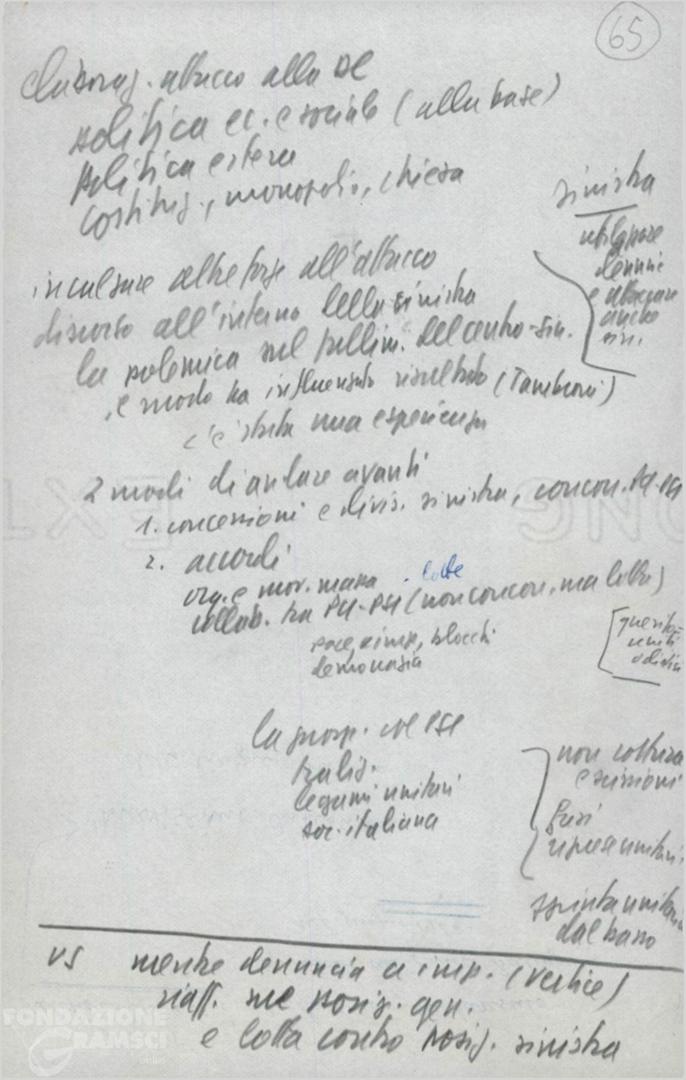 65
attacco alla DC
politica ec. e sociale (alla base)
politica estera
costituz., monopolio, chiesa
sinistra
denunc
e attaccare
anche
sin.
altre forze all'attacco
discorso all'interno della sinistra
la polemica sul fallim. del centro-sin.
e modo ha influenzato risultato (Tambroni)
c'è stata una esperienza
2 modi di andare avanti
1. concessioni e divis. sinistra, concor. PCI-PSI
2. accordi
org. e mov. massa. lotte
collab. tra PCI-PSI (non concorr. ma lotta)
pace, disimp., blocchi
democrazia
unità
la prosp. col PSI
tradiz.
legami unitari
soc. italiana
non rottura
e scissioni
fasi
ripresa unitari.
spinta unitaria
dal basso
VS mentre denuncia a imp. (vertice)
riaff. sue posiz. gen.
e lotta contro posiz. sinistra
FONDAZIONE
GRAMSCI